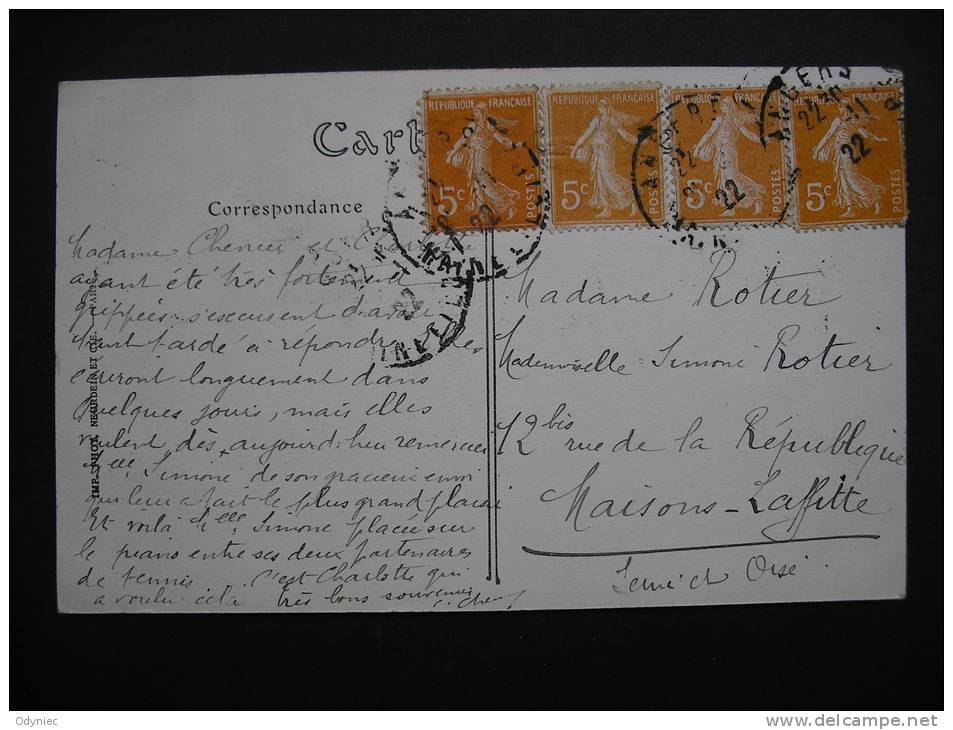 Cart
Correspondance
REPUBLIQUE FRANÇAISE
5c
POSTES
REPUBLIQUE FRANÇAISE
5c
POSTES
REPUBLIQUE FRANÇAISE
5c
POSTES
REPUBLIQUE FRANÇAISE
5c
POSTES
ANGERS
22
11
22
Madame et
ayant été très fortement
grippées s'excusent d'avoir
tant tardé à répondre.
écriront longuement dans
quelques jours, mais elles
veulent dès aujourd'hui remercier
Melle Simone de son gracieux envoi
qui leur a fait le plus grand plaisir
Et voilà Melle Simone placée sur
le piano entre ses deux partenaires
de tennis. C'est Charlotte qui
a voulu cela très bons souvenirs
IMP. PHOT. NEURDEIN ET CIE. PARIS
Madame Rotier
Mademoiselle Simone Rotier
12 bis rue de la République
Maisons-Laffitte
Seine et Oise.
Odyniec
www.delcampe.net